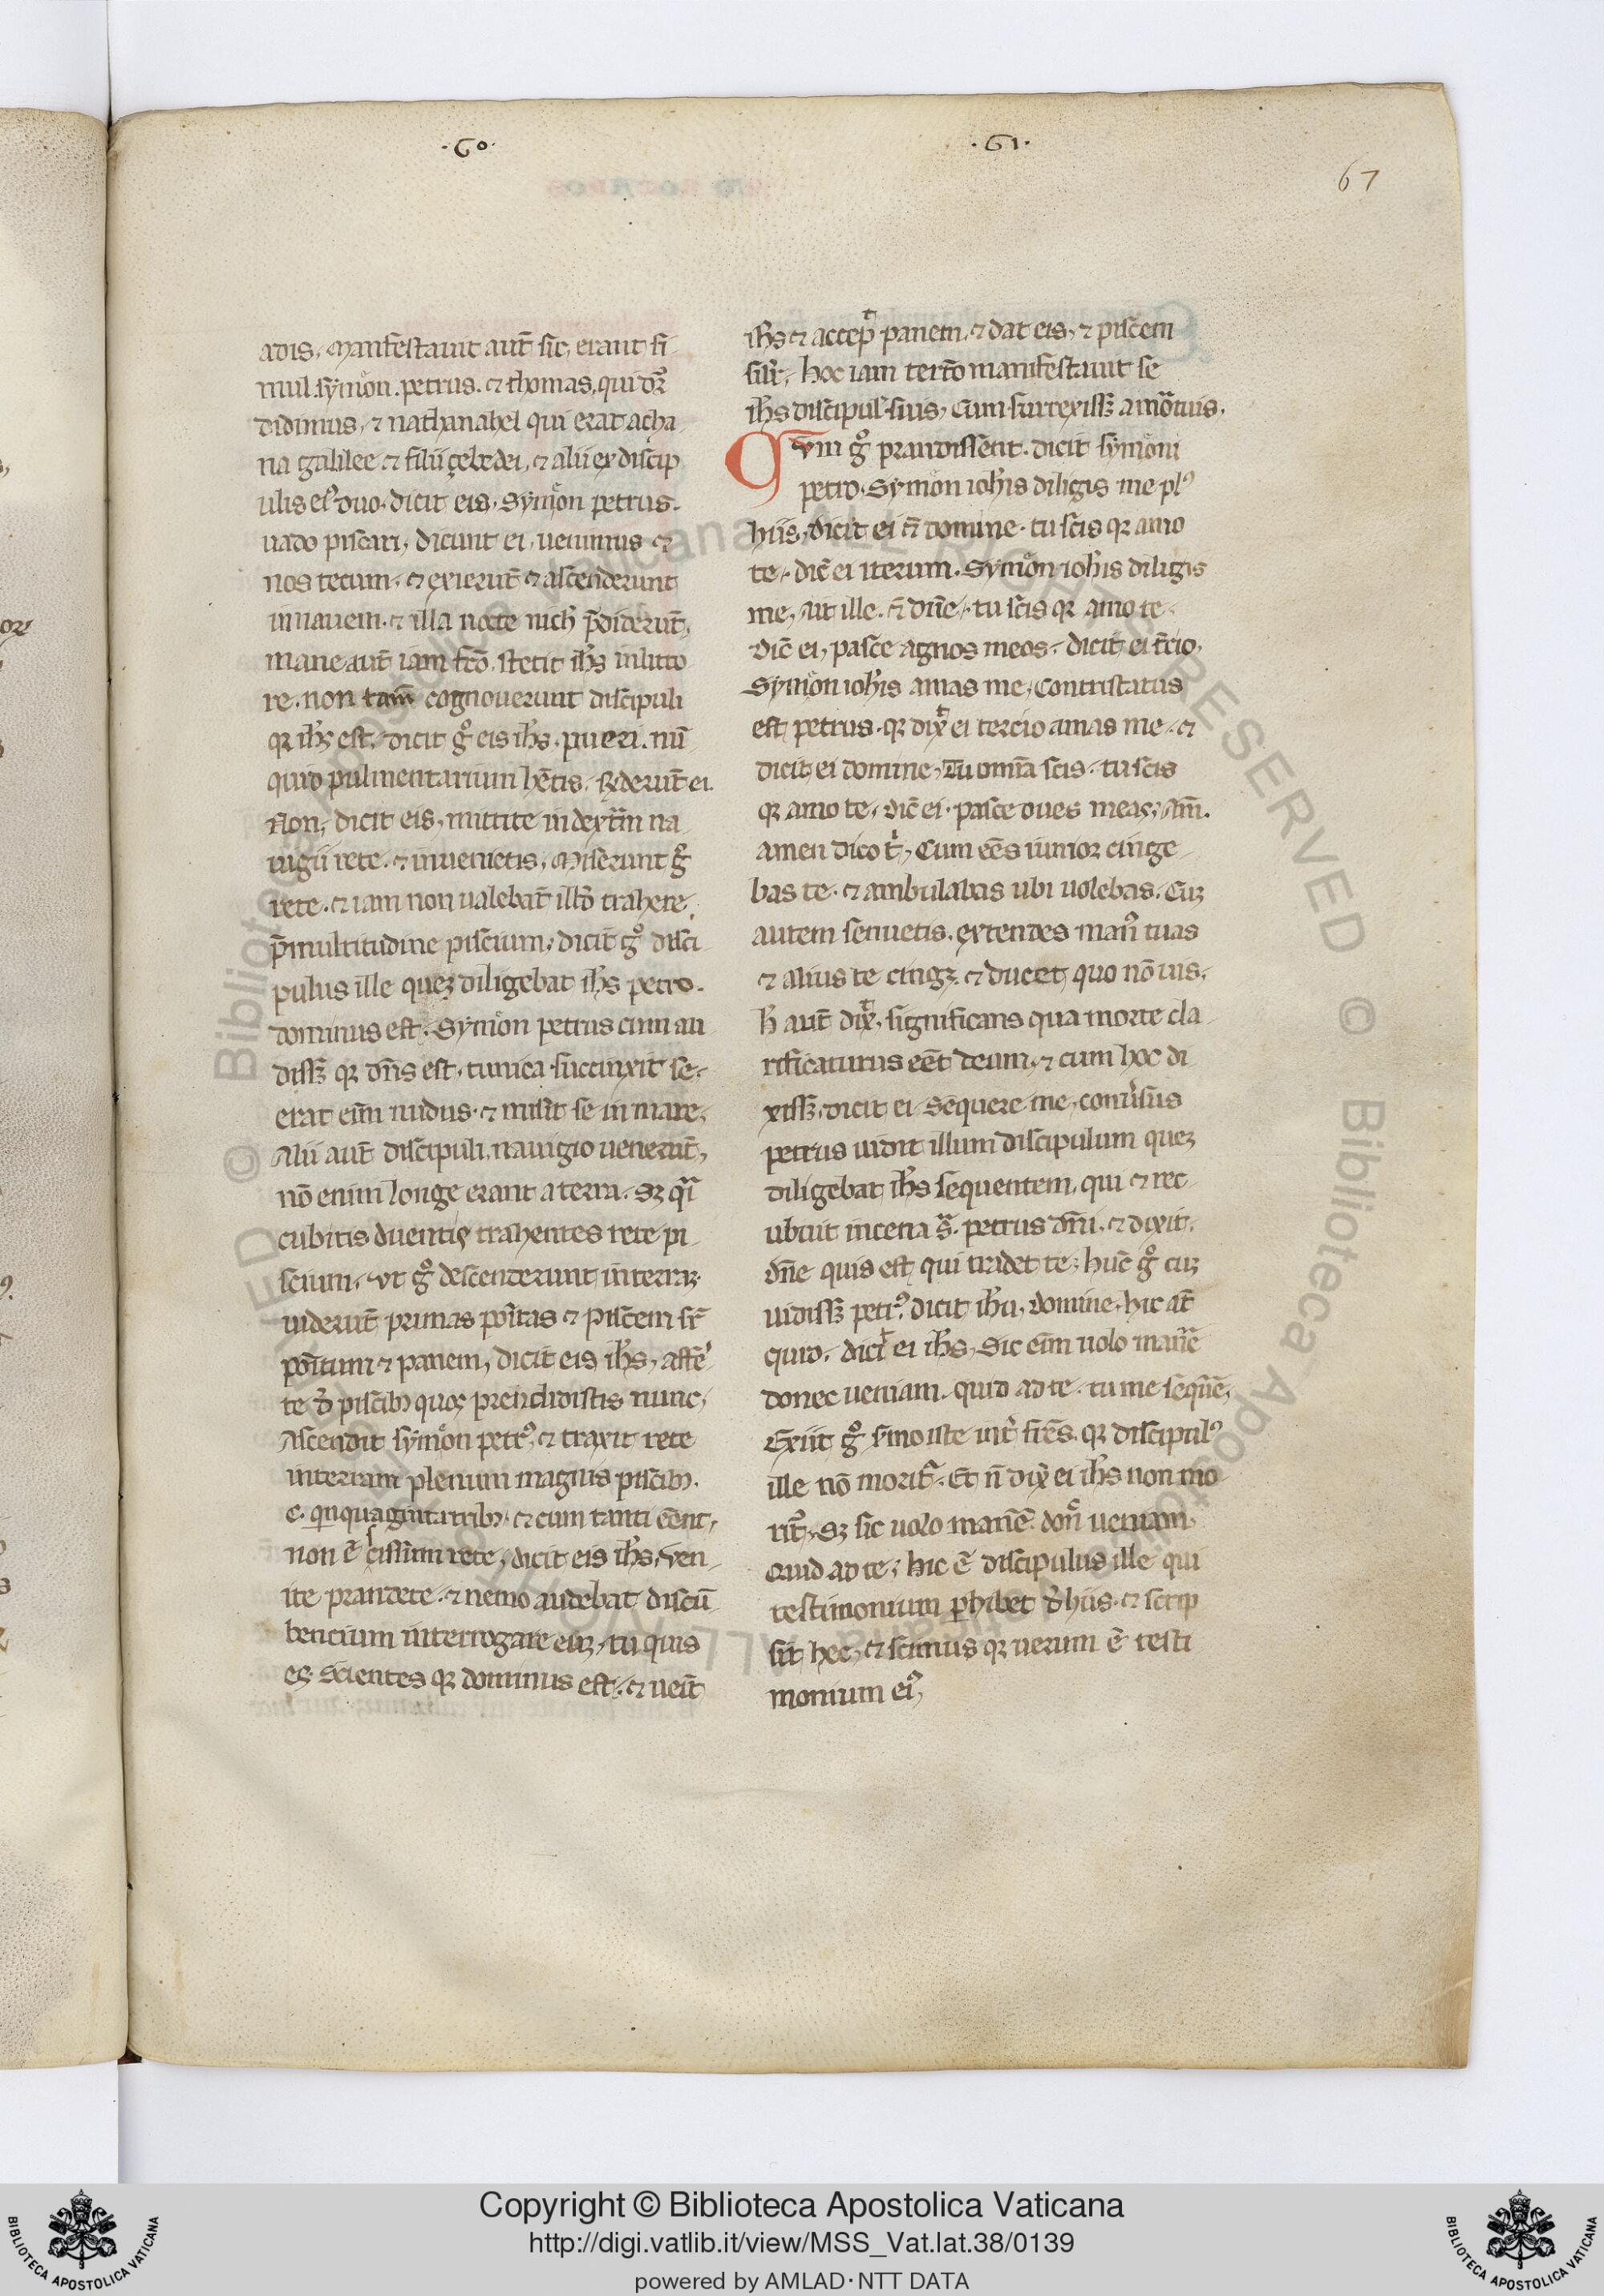 ·60·
·61·
67
adis. Manifestauit aut̄ sic. erant si
mul. symōn. petrus. ⁊ thomas. qui dr̄
didimus. ⁊ nathanahel qui erat acha
na galilee ⁊ filii çebedei. ⁊ alii ex discip
ulis eiꝰ duo. dicit eis. Symōn petrus.
uado piscari. dicunt ei. uenimus ⁊
nos tecum. ⁊ exierūt ⁊ ascenderunt
in nauem. ⁊ illa nocte nich̄ p̄diderūt.
mane aut̄ iam fc̄o. stetit ih̄s in litto
re. non tam̄ cognouerunt discipuli
qꝛ ih̄s est. dicit gͦ eis ih̄s. pueri. nū
quid pulmentarium hēt̄is. R̄derūt ei.
Non. dicit eis. mittite in dext̄m na
uigii rete. ⁊ inuenietis. Miserunt gͦ
rete. ⁊ iam non ualebāt illd̄ trahere.
p̄ multitudine piscium. dicit gͦ disci
pulus ille queꝫ diligebat ih̄s petro.
dominus est. Symōn petrus cum au
dissꝫ qꝛ dn̄s est. tunica succinxit se.
erat eīm nudus. ⁊ misit se in mare.
Alii aut̄ discipuli. nauigio uenerūt.
nō enim longe erant a terra. Sꝫ qͣi
cubitis duentis trahentes rete pi
scium. Vt gͦ descenderunt in terraꝫ
uiderūt prunas po̅itas ⁊ Piscem sr̄
po̅itum ⁊ panem. dicit eis ih̄s. affer̄
te d̄ piscibꝫ quos prenchidistis nunc.
Ascendit symōn petrꝰ. ⁊ traxit rete
in terram plenum magnis piscibꝫ.
c. qnquaginta tribꝫ. ⁊ cum tanti ēent.
non ē scissum rete. dicit eis ih̄s. Ven
ite prandete. ⁊ nemo audebat discū
bentium interrogare euꝫ. tu quis
es. Scientes qꝛ dominus est. ⁊ ueīt
ih̄s ⁊ accep̄ panem. ⁊ dat eis. ⁊ piscem
silr̄. hoc iam tercō manifestauit se
ih̄s discipul̄ suis. cum surrexissꝫ a mōtuis.
Cvm gͦ prandissent. dicit symōni
petro. Symōn ioh̄is diligis me plꝰ
hiis. dicit ei ēt domine. tu scis qꝛ amo
te. dic̄ ei iterum. Symōn ioh̄is diligis
me. ait ille. ēt dn̄e. tu scis qꝛ amo te.
dic̄ ei. pasce agnos meos. dicit ei t̄cio.
Symōn ioh̄is amas me. Contristatus
est petrus. qꝛ dix̄ ei tercio amas me. ⁊
dicit ei domine. Tu omīa scis. tu scis
qꝛ amo te. dic̄ ei. pasce oues meas. Am̄.
amen dico t̄. Cum ees iunior cinge
bas te. ⁊ ambulabas ubi uolebas. Cuꝫ
autem senuetis. extendes manꝰ tuas
⁊ alius te cingꝫ. ⁊ ducet quo nō uis.
h̄ aut̄ dix̄. significans qua morte cla
rificaturus eēt deum. ⁊ cum hoc di
xissꝫ. dicit ei. Sequere me. conūsus
petrus uidit illum discipulum queꝫ
diligebat ih̄s sequentem. qui ⁊ rec
ubuit in cena sͣ. petrus dn̄i. ⁊ dixit.
dn̄e quis est qui tradet te. hūc gͦ cuꝫ
uidissꝫ petrꝰ. dicit ih̄u. domine. hic at̄
quid. dicit ei ih̄s. Sic eīm uolo man̄e
donec ueniam. quid ad te. tu me seqūe.
Exiit gͦ s̄mo iste int̄ fr̄es. qꝛ discipulꝰ
ille nō moritᷣ. Et n̄ dix̄ ei ih̄s non mo
rit̄. Sꝫ sic uolo man̄e don̄ ueniam.
Quid ad te. hic ē discipulus ille qui
testimonium ꝑhibet d̄ hiis. ⁊ scrip
sit hec. ⁊ scimus qꝛ uerum ē testi
monium eiꝰ.
© Biblioteca Apostolica Vaticana ALL RIGHTS RESERVED
Copyright © Biblioteca Apostolica Vaticana
http://digi.vatlib.it/view/MSS_Vat.lat.38/0139
powered by AMLAD·NTT DATA
BIBLIOTECA APOSTOLICA VATICANA
BIBLIOTECA APOSTOLICA VATICANA